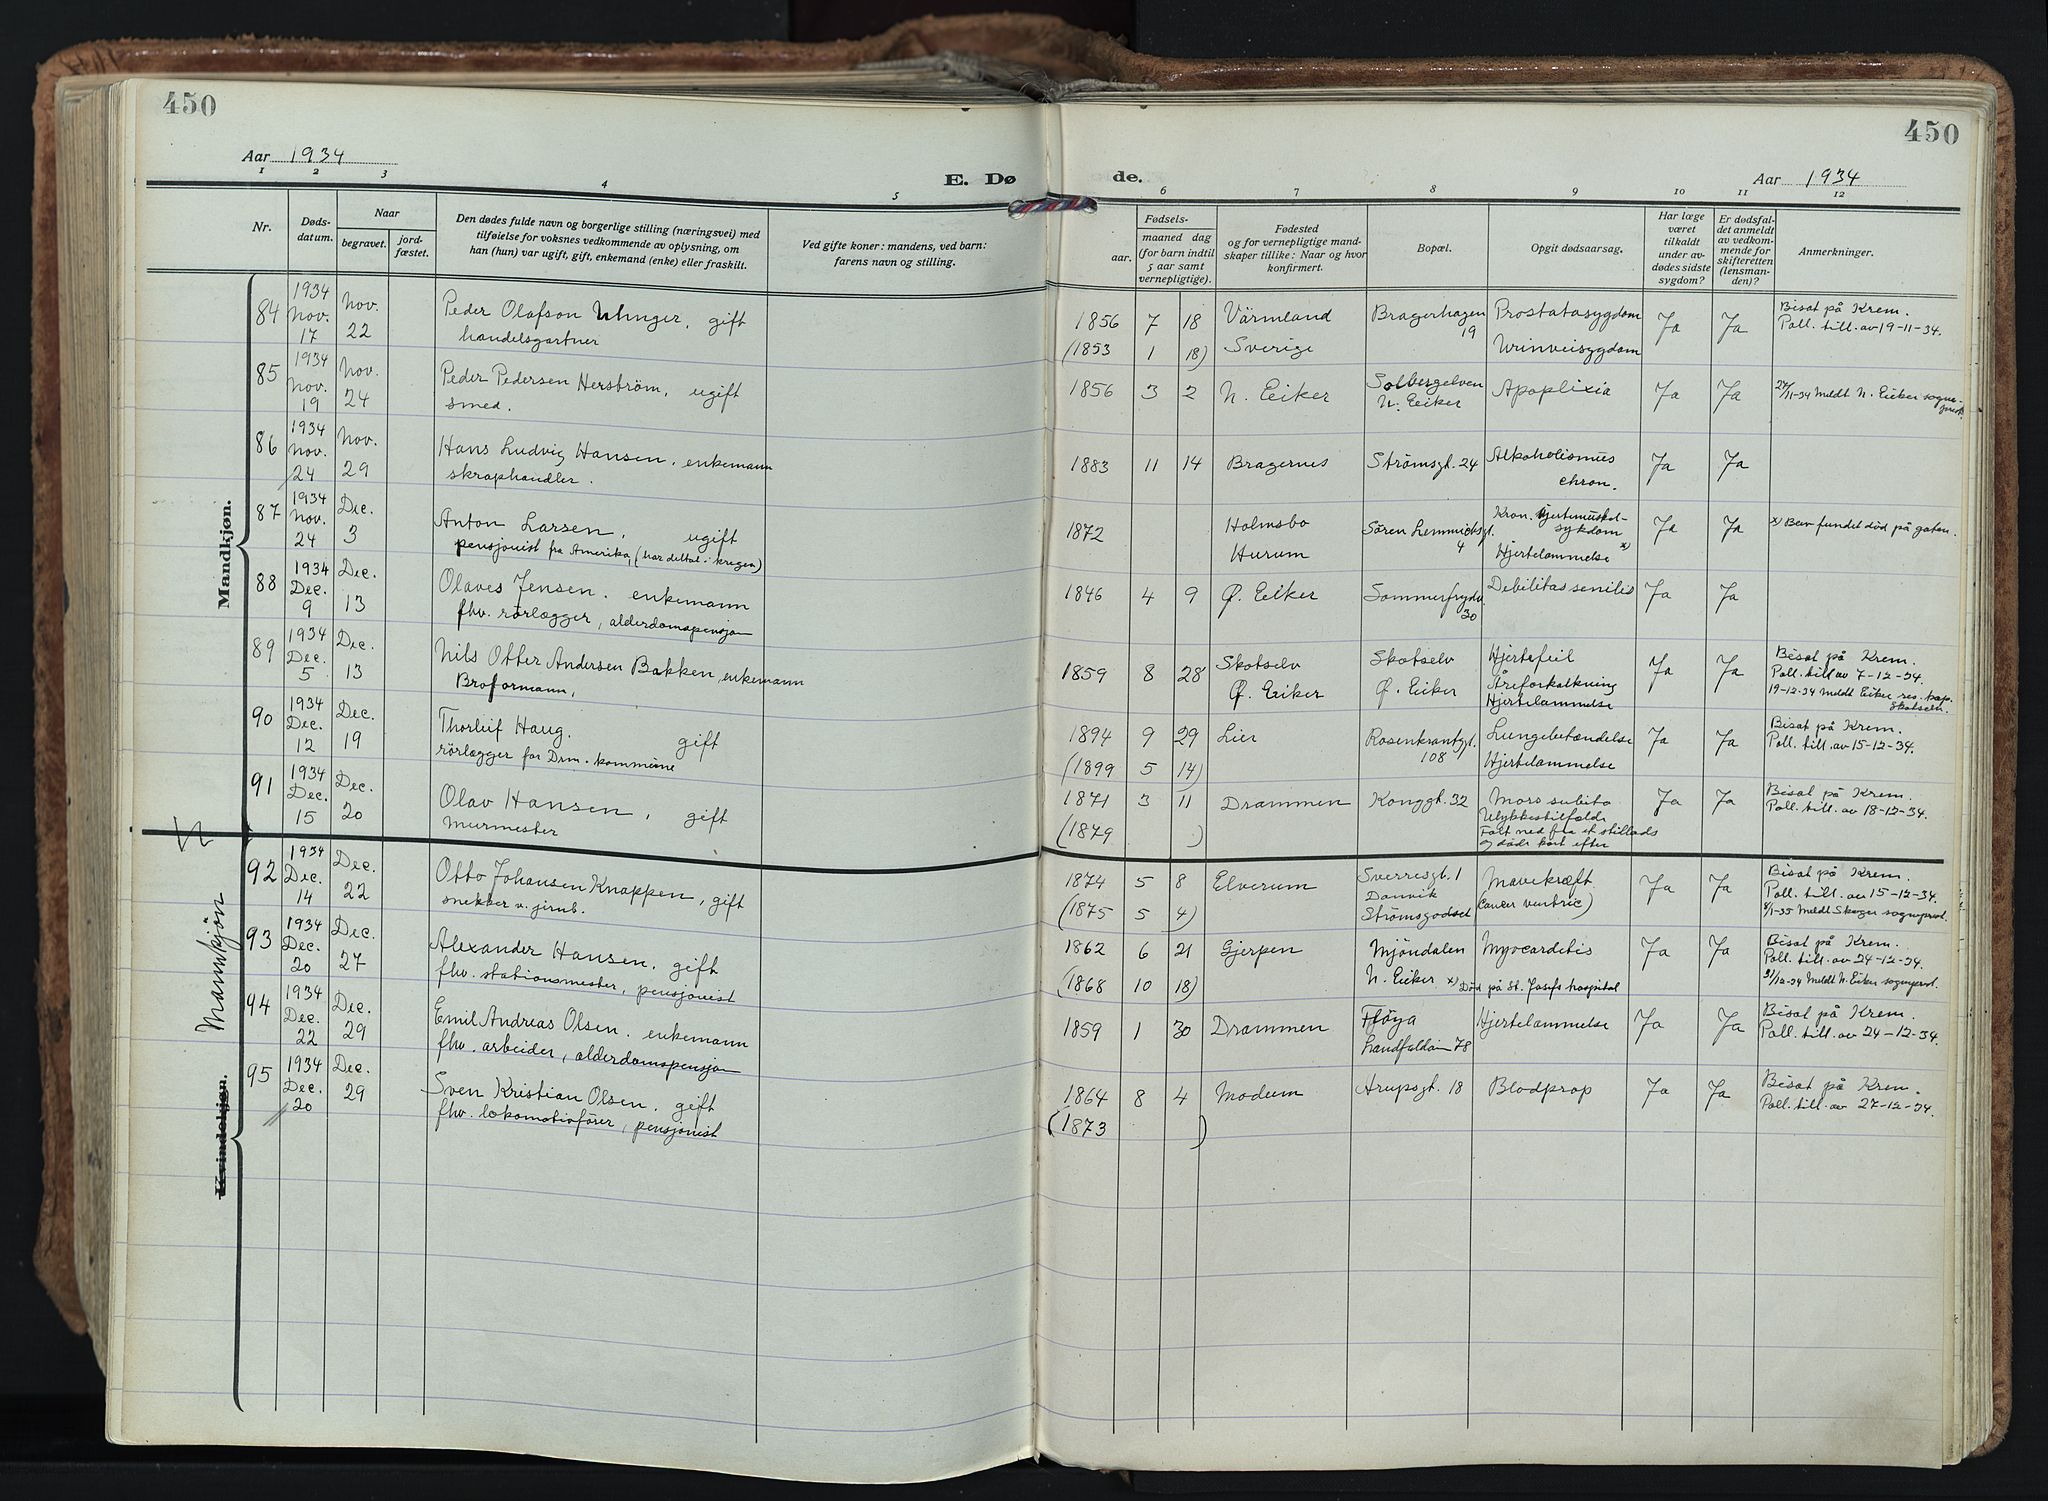 450
450
Aar 1934
E. Døde.
Aar 1934
1 2 3 4 5 6 7 8 9 10 11 12
Nr.
Døds-
datum.
Naar
begravet.
jord-
fæstet.
Den dødes fulde navn og borgerlige stilling (næringsvei) med
tilføielse for voksnes vedkommende av oplysning, om
han (hun) var ugift, gift, enkemand (enke) eller fraskilt.
Ved gifte koner: mandens, ved barn:
farens navn og stilling.
Fødsels-
aar. maaned dag
(for barn indtil
5 aar samt
vernepligtige).
Fødested
og for vernepligtige mand-
skaper tillike: Naar og hvor
konfirmert.
Bopæl.
Opgit dødsaarsag.
Har læge
været
tilkaldt
under av-
dødes sidste
sygdom?
Er dødsfal-
det anmeldt
av vedkom-
mende for
skifteretten
(lensman-
den)?
Anmerkninger.
Mandkjøn.
84 1934 Nov. 17 Nov. 22
Peder Olafson Uhnger, gift
handelsgartner
1856 7 18 Värmland Bragerhagen 19 Prostatasygdom Ja Ja Bisat på Krem.
Poll. till. av 19-11-34.
(1853 1 18) Sverige Urinveisygdom
85 1934 Nov. 19 Nov. 24
Peder Pedersen Herström, ugift
smed.
1856 3 2 N. Eiker Solbergelven
N. Eeiker Apoplixia Ja Ja 24/11-34 Meldt N. Eiker sogne-
prest.
86 1934 Nov. 24 Nov. 29
Hans Ludvig Hansen, enkemann
skraphandler.
1883 11 14 Bragernes Strömsgt. 24 Alkoholismus
chron. Ja Ja
87 1934 Nov. 24 Dec. 3
Anton Larsen, ugift
pensjonist fra Amerika, (har deltat i krigen)
1872 Holmsbo
Hurum Sören Lemmichsgt. 4 Kron. Hjertemuskel-
sykdom
Hjertelammelse x) Ja Ja x) Blev fundet död på gaten.
88 1934 Dec. 9 Dec. 13
Olaves Jensen. enkemann
fhv. rörlægger, alderdomspensjon
1846 4 9 Ø. Eiker Sommerfrydv. 30 Debilitas senilis Ja Ja
89 1934 Dec. 5 Dec. 13
Nils Otter Andersen Bakken, enkemann
Broformann,
1859 8 28 Skotselv
Ø. Eiker Skotselv
Ø. Eiker Hjertefeil
Åreforkalkning
Hjertelammelse Ja Ja Bisat på Krem.
Poll. till av 7-12-34.
19-12-34 Meldt Eiker res. kap.
Skotselv.
90 1934 Dec. 12 Dec. 19
Thorleif Haug. gift
rörlægger for Drm. kommune
1894 9 29 Lier Rosenkrantzgt. 108 Lungebetændelse Ja Ja Bisat på Krem.
Poll. till. av 15-12-34.
(1899 5 14) Hjertelammelse
91 1934 Dec. 15 Dec. 20
Olav Hansen, gift
Murmester
1871 3 11 Drammen Konggt. 32 Mors subita Ja Ja Bisat på Krem.
Poll. till. av 18-12-34.
(1879 ) Ulykkestilfælde
Falt ned fra et stillads
og döde kort efter
Mannkjön
Kvindekjøn.
92 1934 Dec. 14 Dec. 22
Otto Johansen Knappen, gift
snekker v. jernb.
1874 5 8 Elverum Sverresgt. 1
Danvik
Strömsgodset Mavekræft
(Cancer ventric) Ja Ja Bisat på Krem.
Poll. till. av 15-12-34.
8/1-35 Meldt Skoger sogneprest.
(1875 5 4)
93 1934 Dec. 20 Dec. 27
Alexander Hansen, gift
fhv. stationsmester, pensjonist
1862 6 21 Gjerpen Mjöndalen
N. Eiker Myocarditis Ja Ja Bisat på Krem.
Poll. till. av 24-12-34.
31/12-34 Meldt N. Eiker sogneprest.
(1868 10 18) x) Död på St. Josefs hospital
94 1934 Dec. 22 Dec. 29
Emil Andreas Olsen. enkemann
fhv. arbeider, alderdomspensjon
1859 1 30 Drammen Flöya
Landfaldöia 78 Hjertelammelse Ja Ja Bisat på Krem.
Poll. till. av 24-12-34.
95 1934 Dec. 20 Dec. 29
Sven Kristian Olsen. gift
fhv. lokomotivförer, pensjonist
1864 8 4 Modum Arupsgt. 18 Blodprop Ja Ja Bisat på Krem.
Poll. till. av 27-12-34.
(1873 )